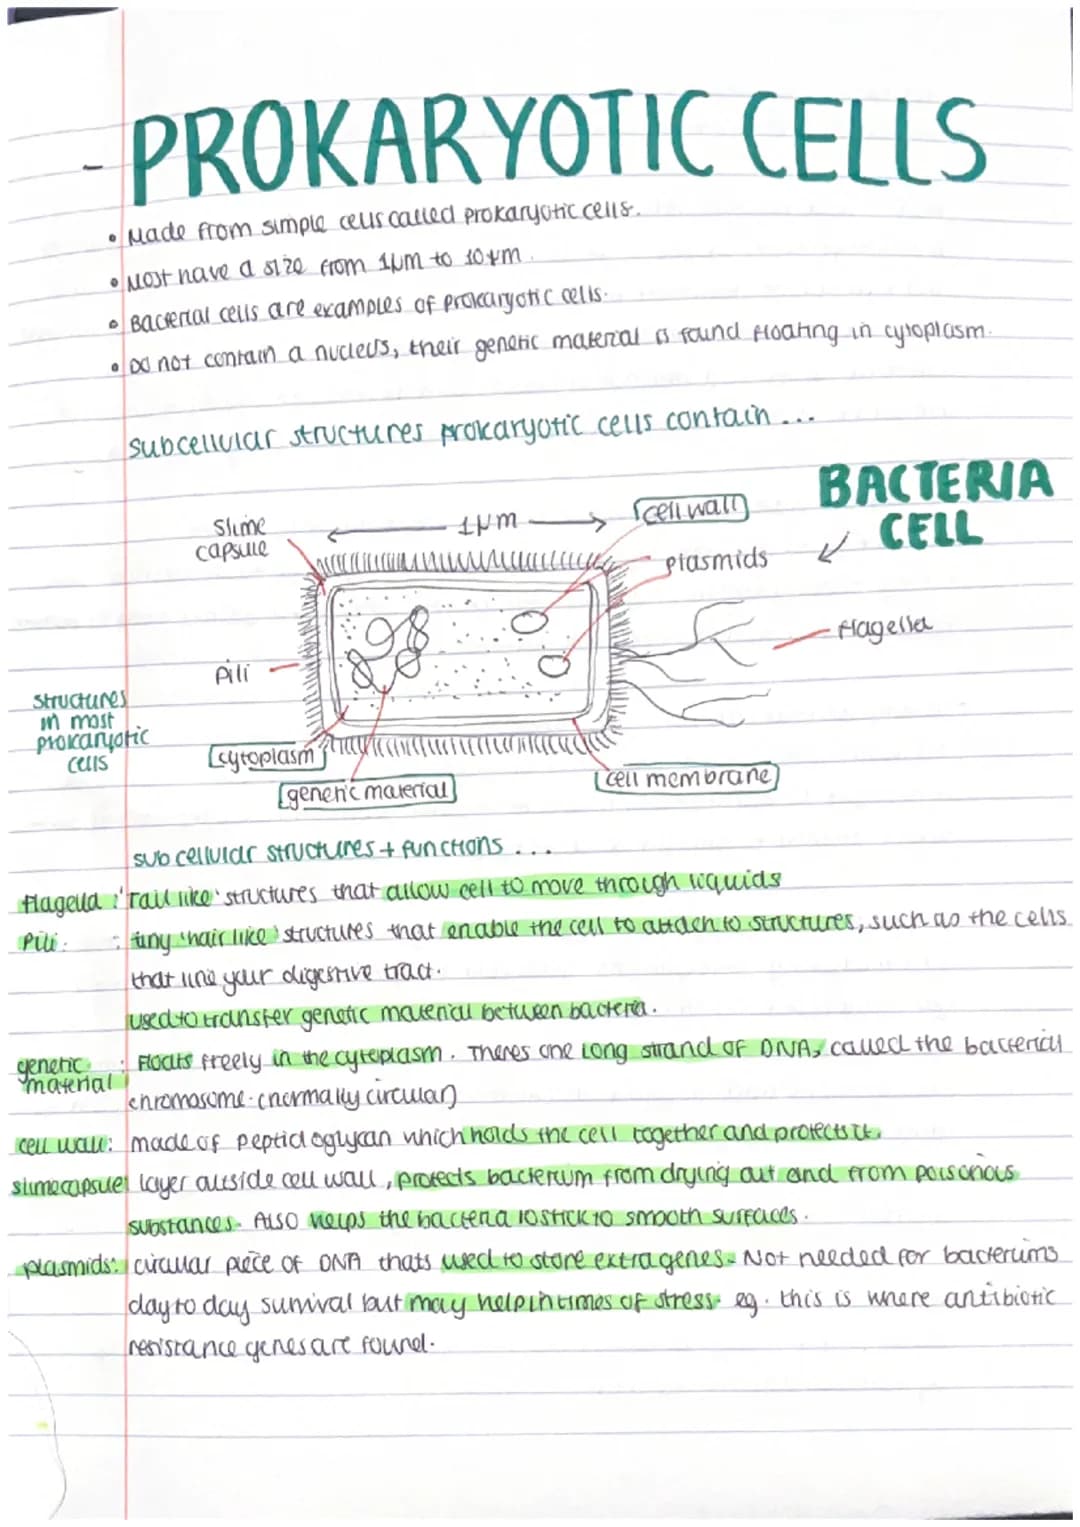 - PROKARYOTIC CELLS
• Made from simple cells called prokaryotic cells.
• Most have a size from 1μm to 10μm.
• Bacterial cells are examples of prokaryotic cells.
• Do not contain a nucleus, their genetic material is found floating in cytoplasm.
subcellular structures prokaryotic cells contain ...
BACTERIA
CELL
Slime
capsule
1μm
cell wall
plasmids
flagella
Pili
structures
in most
prokaryotic
cells
cytoplasm
genetic material
cell membrane
sub cellular structures + functions ...
flagella : 'Tail like' structures that allow cell to move through liquids
Pili : tiny 'hair like' structures that enable the cell to attach to structures, such as the cells
that line your digestive tract.
used to transfer genetic material between bacteria.
genetic : Floats freely in the cytoplasm. Theres one long strand of DNA, called the bacterial
material
chromosome. (normally circular)
cell wall: made of peptidoglycan which holds the cell together and protects it.
slime capsule: layer outside cell wall, protects bacterium from drying out and from poisonous
substances. Also helps the bacteria to stick to smooth surfaces.
plasmids: circular piece of DNA thats used to store extra genes. Not needed for bacteriums
day to day survival but may help in times of stress. eg. this is where antibiotic
resistance genes are found.